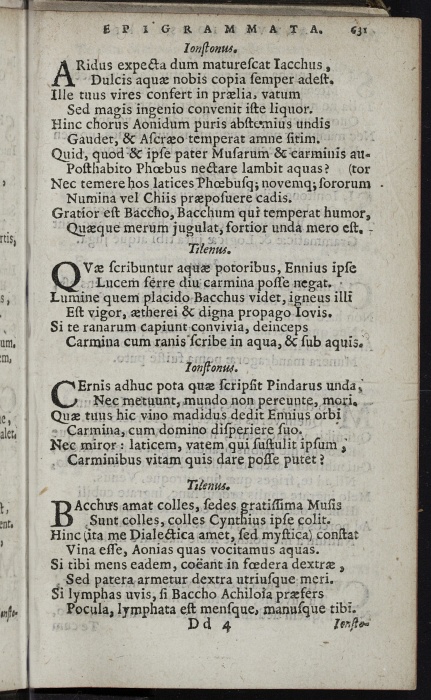 EPIGRAMMATA. 631
Ionſtonus.
ARidus expecta dum matureſcat Iacchus,
Dulcis aquæ nobis copia ſemper adeſt.
Ille tuus vires confert in prælia, vatum
Sed magis ingenio convenit iſte liquor.
Hinc chorus Aonidum puris abſtemius undis
Gaudet, & Aſcræo temperat amne ſitim.
Quid, quod & ipſe pater Muſarum & carminis au-
Poſthabito Phœbus nectare lambit aquas? (tor
Nec temere hos latices Phœbuſq; novemq; ſororum
Numina vel Chiis præpoſuere cadis.
Gratior eſt Baccho, Bacchum qui temperat humor,
Quæque merum jugulat, fortior unda mero eſt.
Tilenus.
QVæ ſcribuntur aquæ potoribus, Ennius ipſe
Lucem ferre diu carmina poſſe negat.
Lumine quem placido Bacchus videt, igneus illi
Eſt vigor, ætherei & digna propago Iovis.
Si te ranarum capiunt convivia, deinceps
Carmina cum ranis ſcribe in aqua, & ſub aquis.
Ionſtonus.
CErnis adhuc pota quæ ſcripſit Pindarus unda,
Nec metuunt, mundo non pereunte, mori.
Quæ tuus hic vino madidus dedit Ennius orbi
Carmina, cum domino diſperiere ſuo.
Nec miror: laticem, vatem qui ſuſtulit ipſum,
Carminibus vitam quis dare poſſe putet?
Tilenus.
BAcchus amat colles, ſedes gratiſſima Muſis
Sunt colles, colles Cynthius ipſe colit.
Hinc (ita me Dialectica amet, ſed myſtica) conſtat
Vina eſſe, Aonias quas vocitamus aquas.
Si tibi mens eadem, coëant in fœdera dextræ,
Sed patera armetur dextra utriuſque meri.
Si lymphas uvis, ſi Baccho Achiloia præfers
Pocula, lymphata eſt menſque, manuſque tibi.
Dd 4 Ionſto-